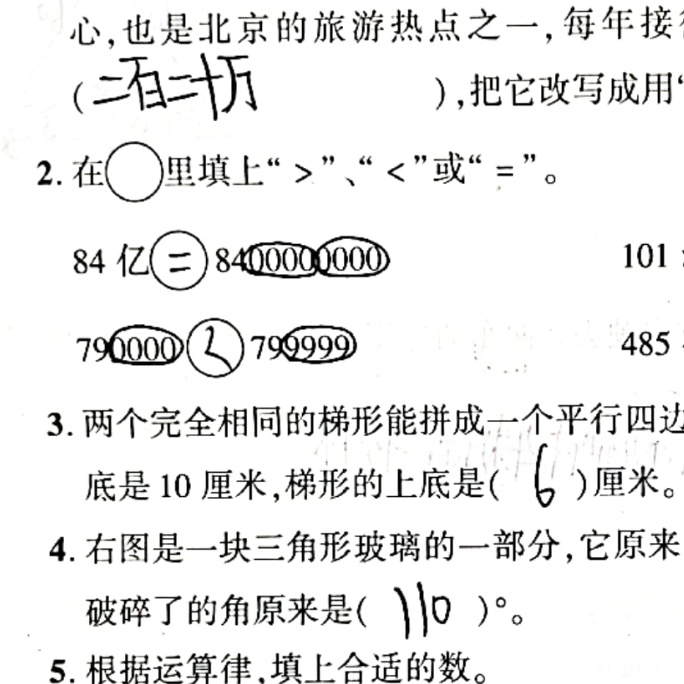 心,也是北京的旅游热点之一,每年接
(二百二十万),把它改写成用“
2. 在○里填上“>”、“<”或“=”。
84 亿=8400000000 101
790000<799999 485
3. 两个完全相同的梯形能拼成一个平行四边
底是 10 厘米,梯形的上底是( 6 )厘米。
4. 右图是一块三角形玻璃的一部分,它原来
破碎了的角原来是( 110 )°。
5. 根据运算律,填上合适的数。